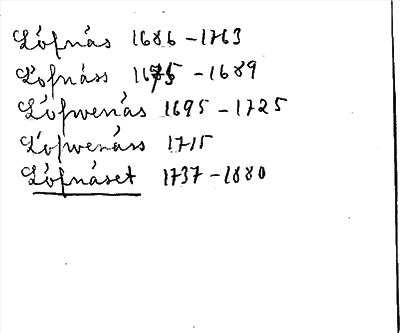 Löfnäs 1686-1763
Löfnäss 1675-1689
Löfwenäs 1695-1725
Löfwenäss 1715
Löfnäset 1737-1880